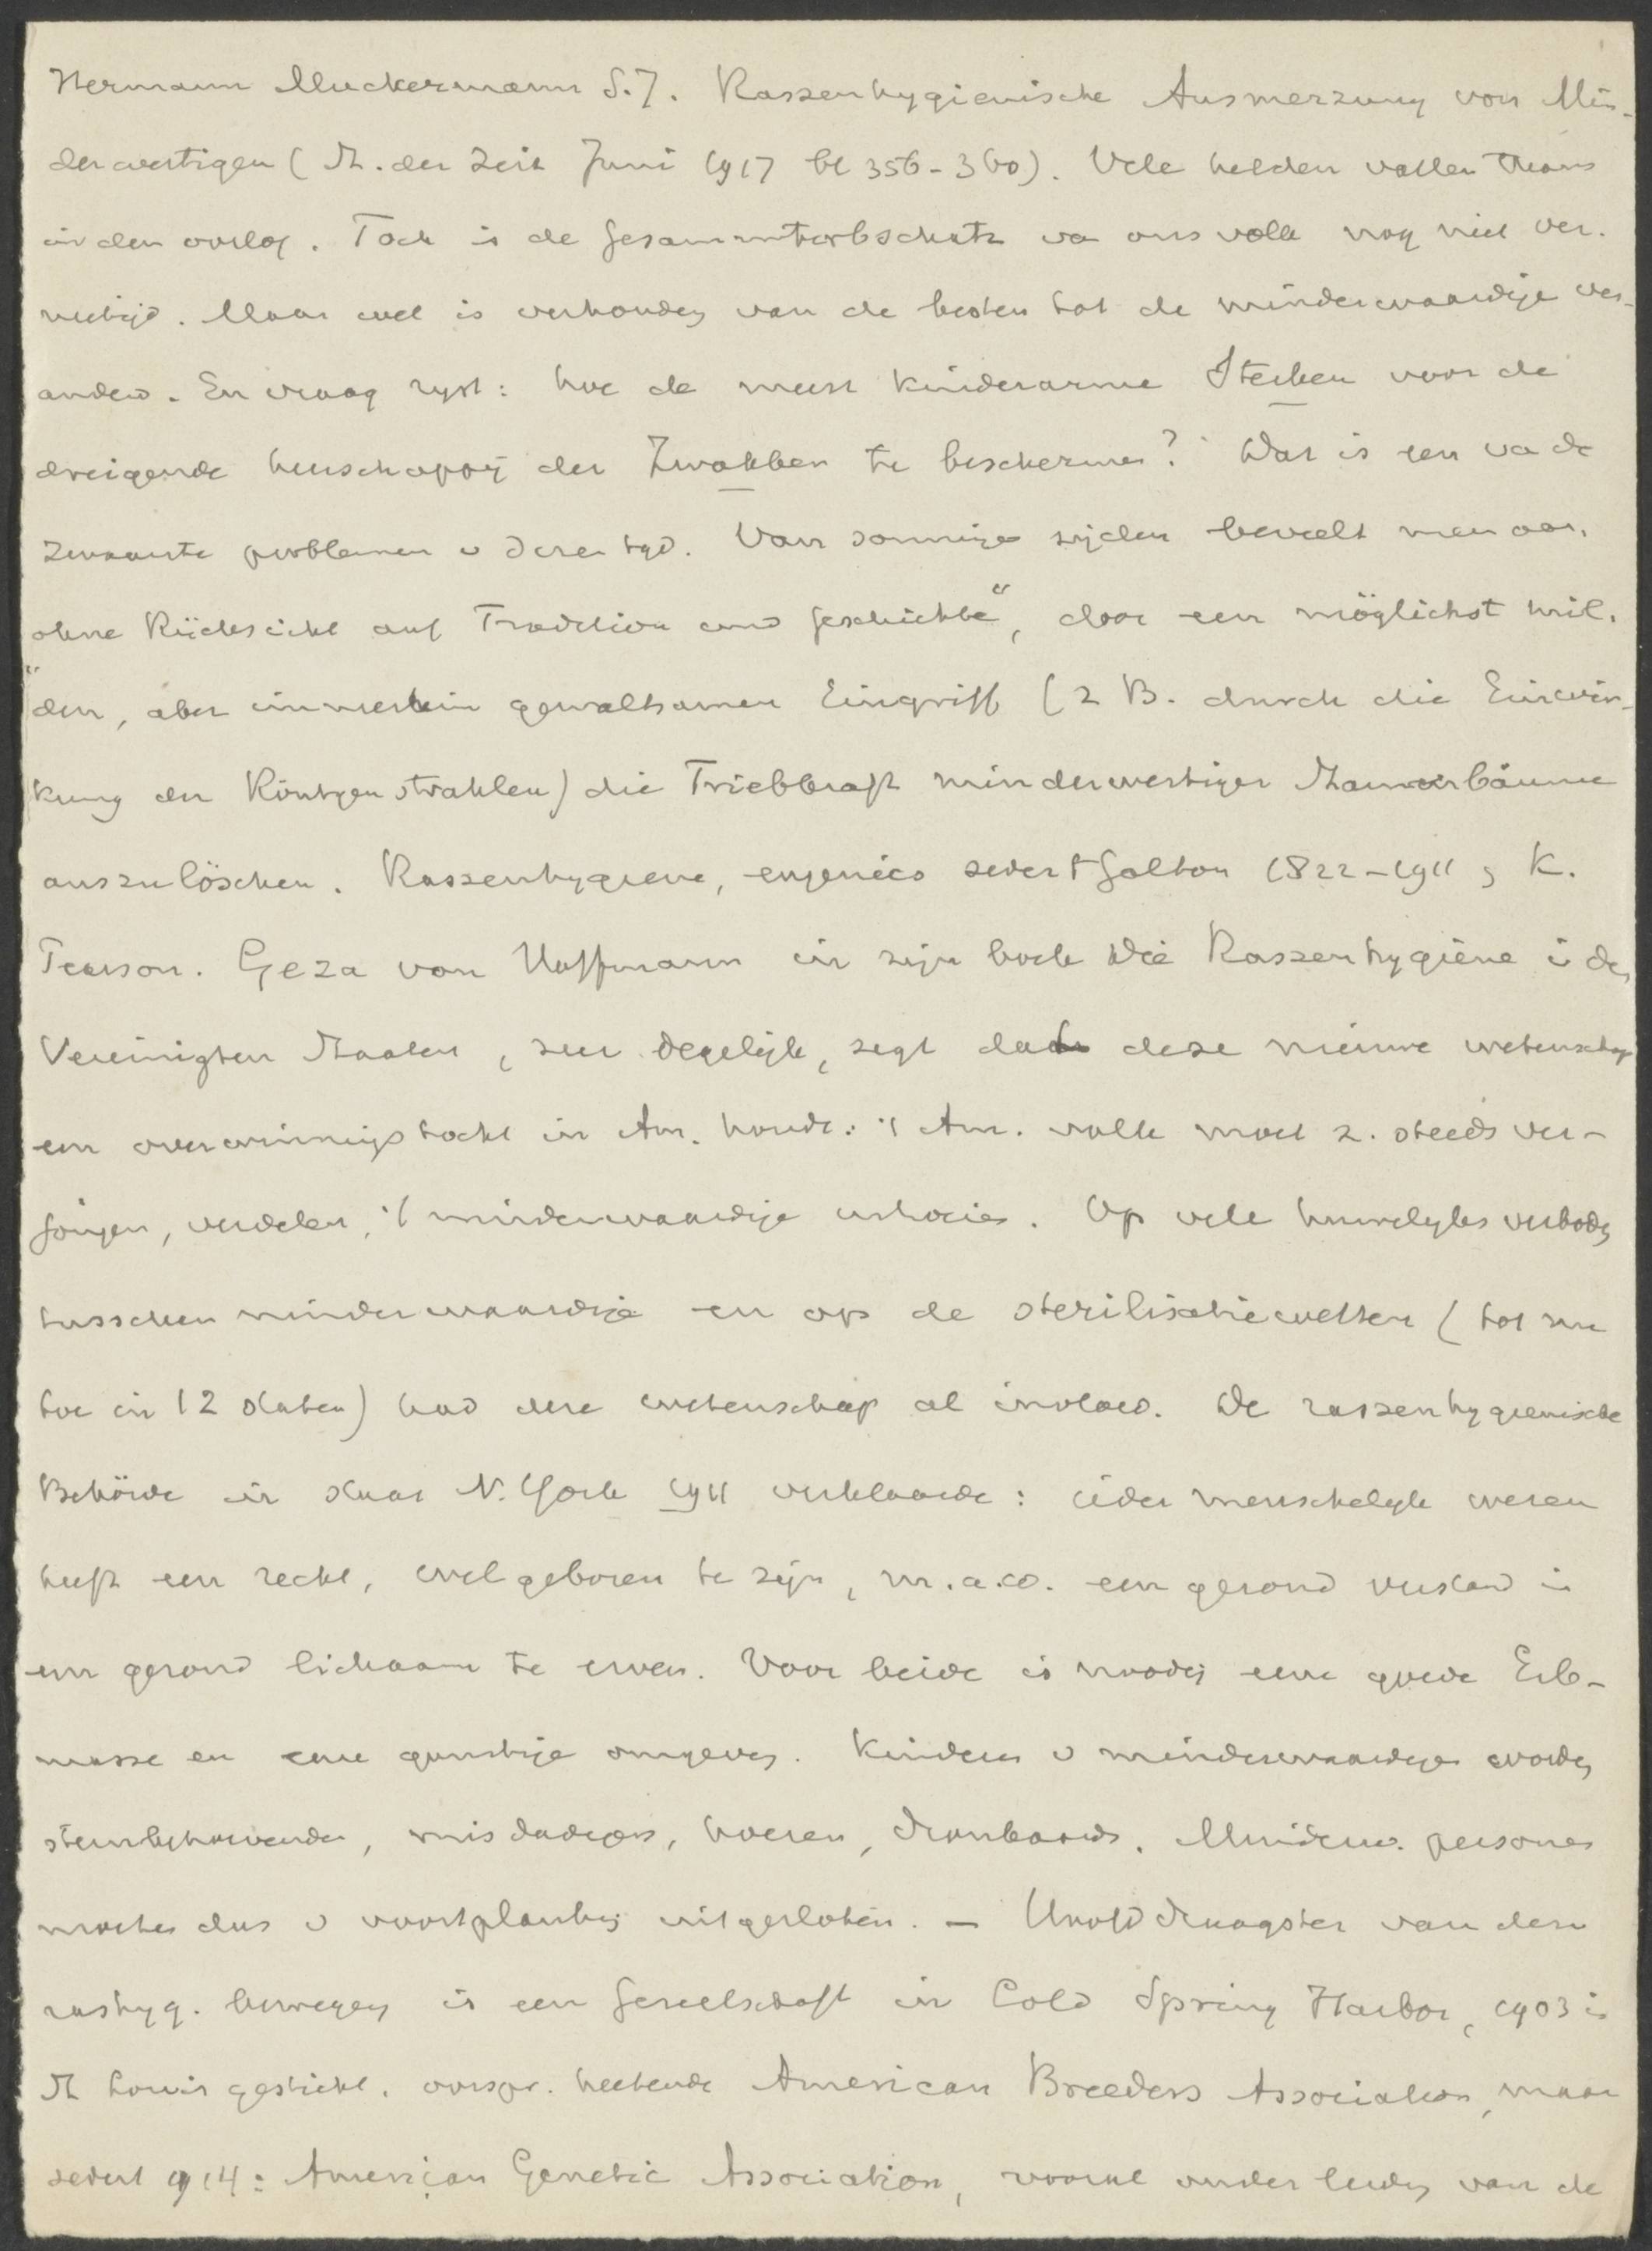 Hermann Muckermann S.J. Rassenhygienische Ausmerzung von Min-
derwertigen (St. der Zeit Juni 1917 bl 356-360). Vele helden vallen thans
in den oorlog. Toch is de Gesammterbschatz va ons volk nog niet ver-
nietigd. Maar wel is verhoudg van de besten tot de minderwaardige ver-
anderd. En vraag ryst: hoe de meest kinderarme Sterken voor de
dreigende heerschappij der Zwakken te beschermen? Dat is een va de
zwaarste problemen v deze tyd. Van sommige zijden beveelt men aan,
ohne Rücksicht auf Tradition und Geschichte", door een möglichst mil-
"den, aber immerhin gewaltsamen Eingriff (z B. durch die Einwir-
kung der Röntgenstrahlen) die Triebkraft minderwertiger Stammbäume
auszulöschen. Rassenhygiene, eugenics sedert Galton 1822-1911 & K.
Pearson. Geza von Hoffmann in zijn boek Die Rassenhygiene i den
Vereinigten Staaten, zeer degelijk, zegt dat deze nieuwe wetenschap
een overwinningstocht in Am. houdt: 't Am. volk moet z. steeds ver-
jongen, veredelen, 't minderwaardige uitroeien. Op vele huwelyksverbodg
tusschen minderwaardige en op de sterilisatiewetten (tot nu
toe in 12 staten) had deze wetenschap al invloed. De rassenhygienische
Behörde in staat N. York 1911 verklaarde: ieder menschelyk wezen
heeft een recht, wel geboren te zijn, m.a.w. een gezond verstand in
een gezond lichaam te erven. Voor beide is noodig eene goede Erb-
masse en eene gunstige omgevg. Kinderen v minderwaardigen wordg
steunbehoevenden, misdadigers, hoeren, dronkaards. Minderw. personen
moeten dus v voortplantg uitgesloten. — Hoofddraagster van deze
rashyg. bewegg is een Gesellschaft in Cold Spring Harbor, 1903 in
St Louis gesticht. oorspr. heetende American Breeders Association, maar
sedert 1914: American Genetic Association, vooral onder leidg van de